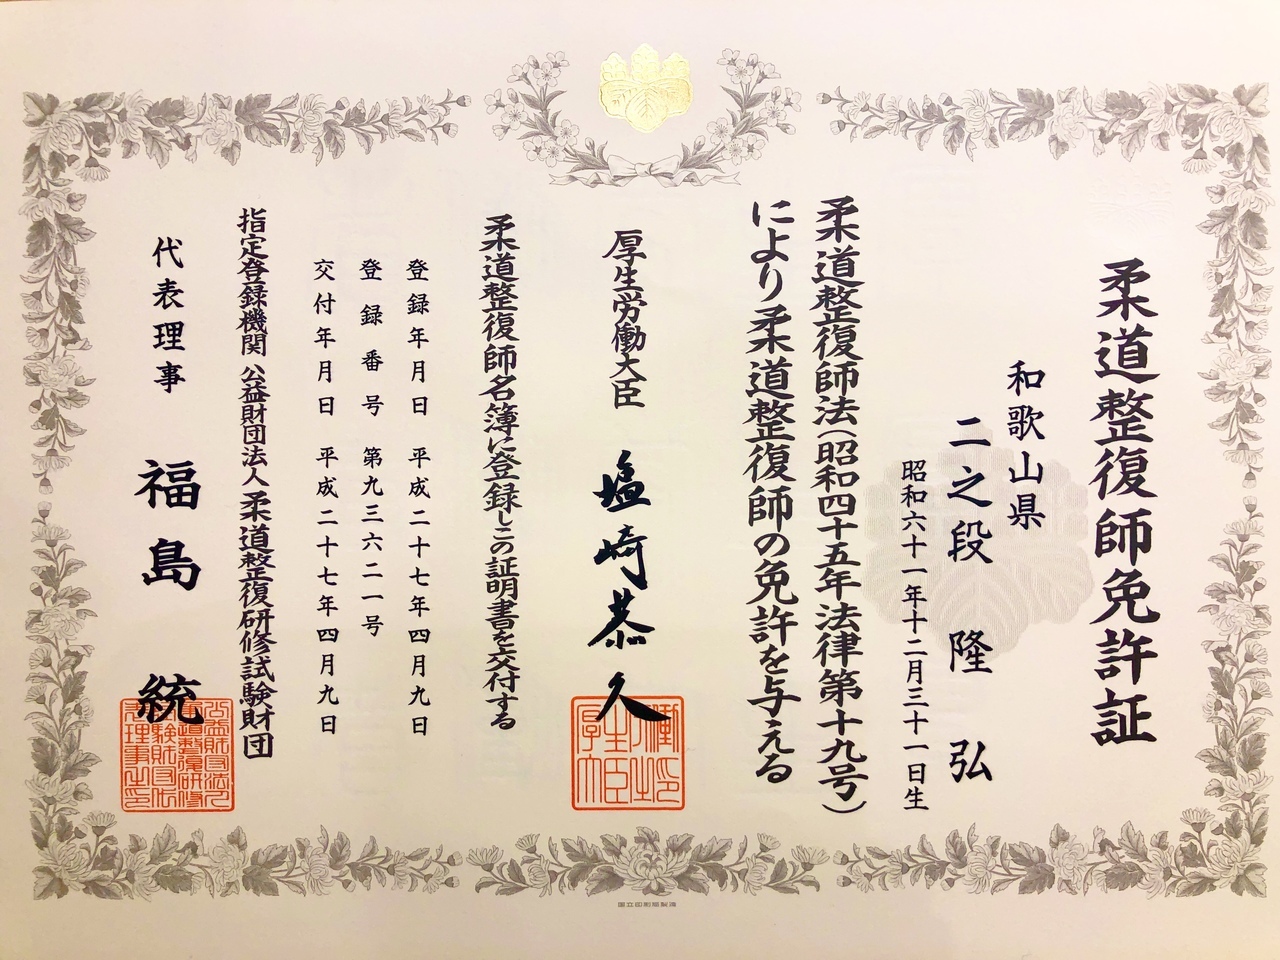 柔道整復師免許証
和歌山県
二之段隆弘
昭和六十一年十二月三十一日生
柔道整復師法(昭和四十五年法律第十九号)
により柔道整復師の免許を与える
厚生労働大臣 塩崎恭久
柔道整復師名簿に登録しこの証明書を交付する
登録年月日 平成二十七年四月九日
登録番号 第九三六二一号
交付年月日 平成二十七年四月九日
指定登録機関 公益財団法人柔道整復研修試験財団
代表理事 福島統
国立印刷局製造